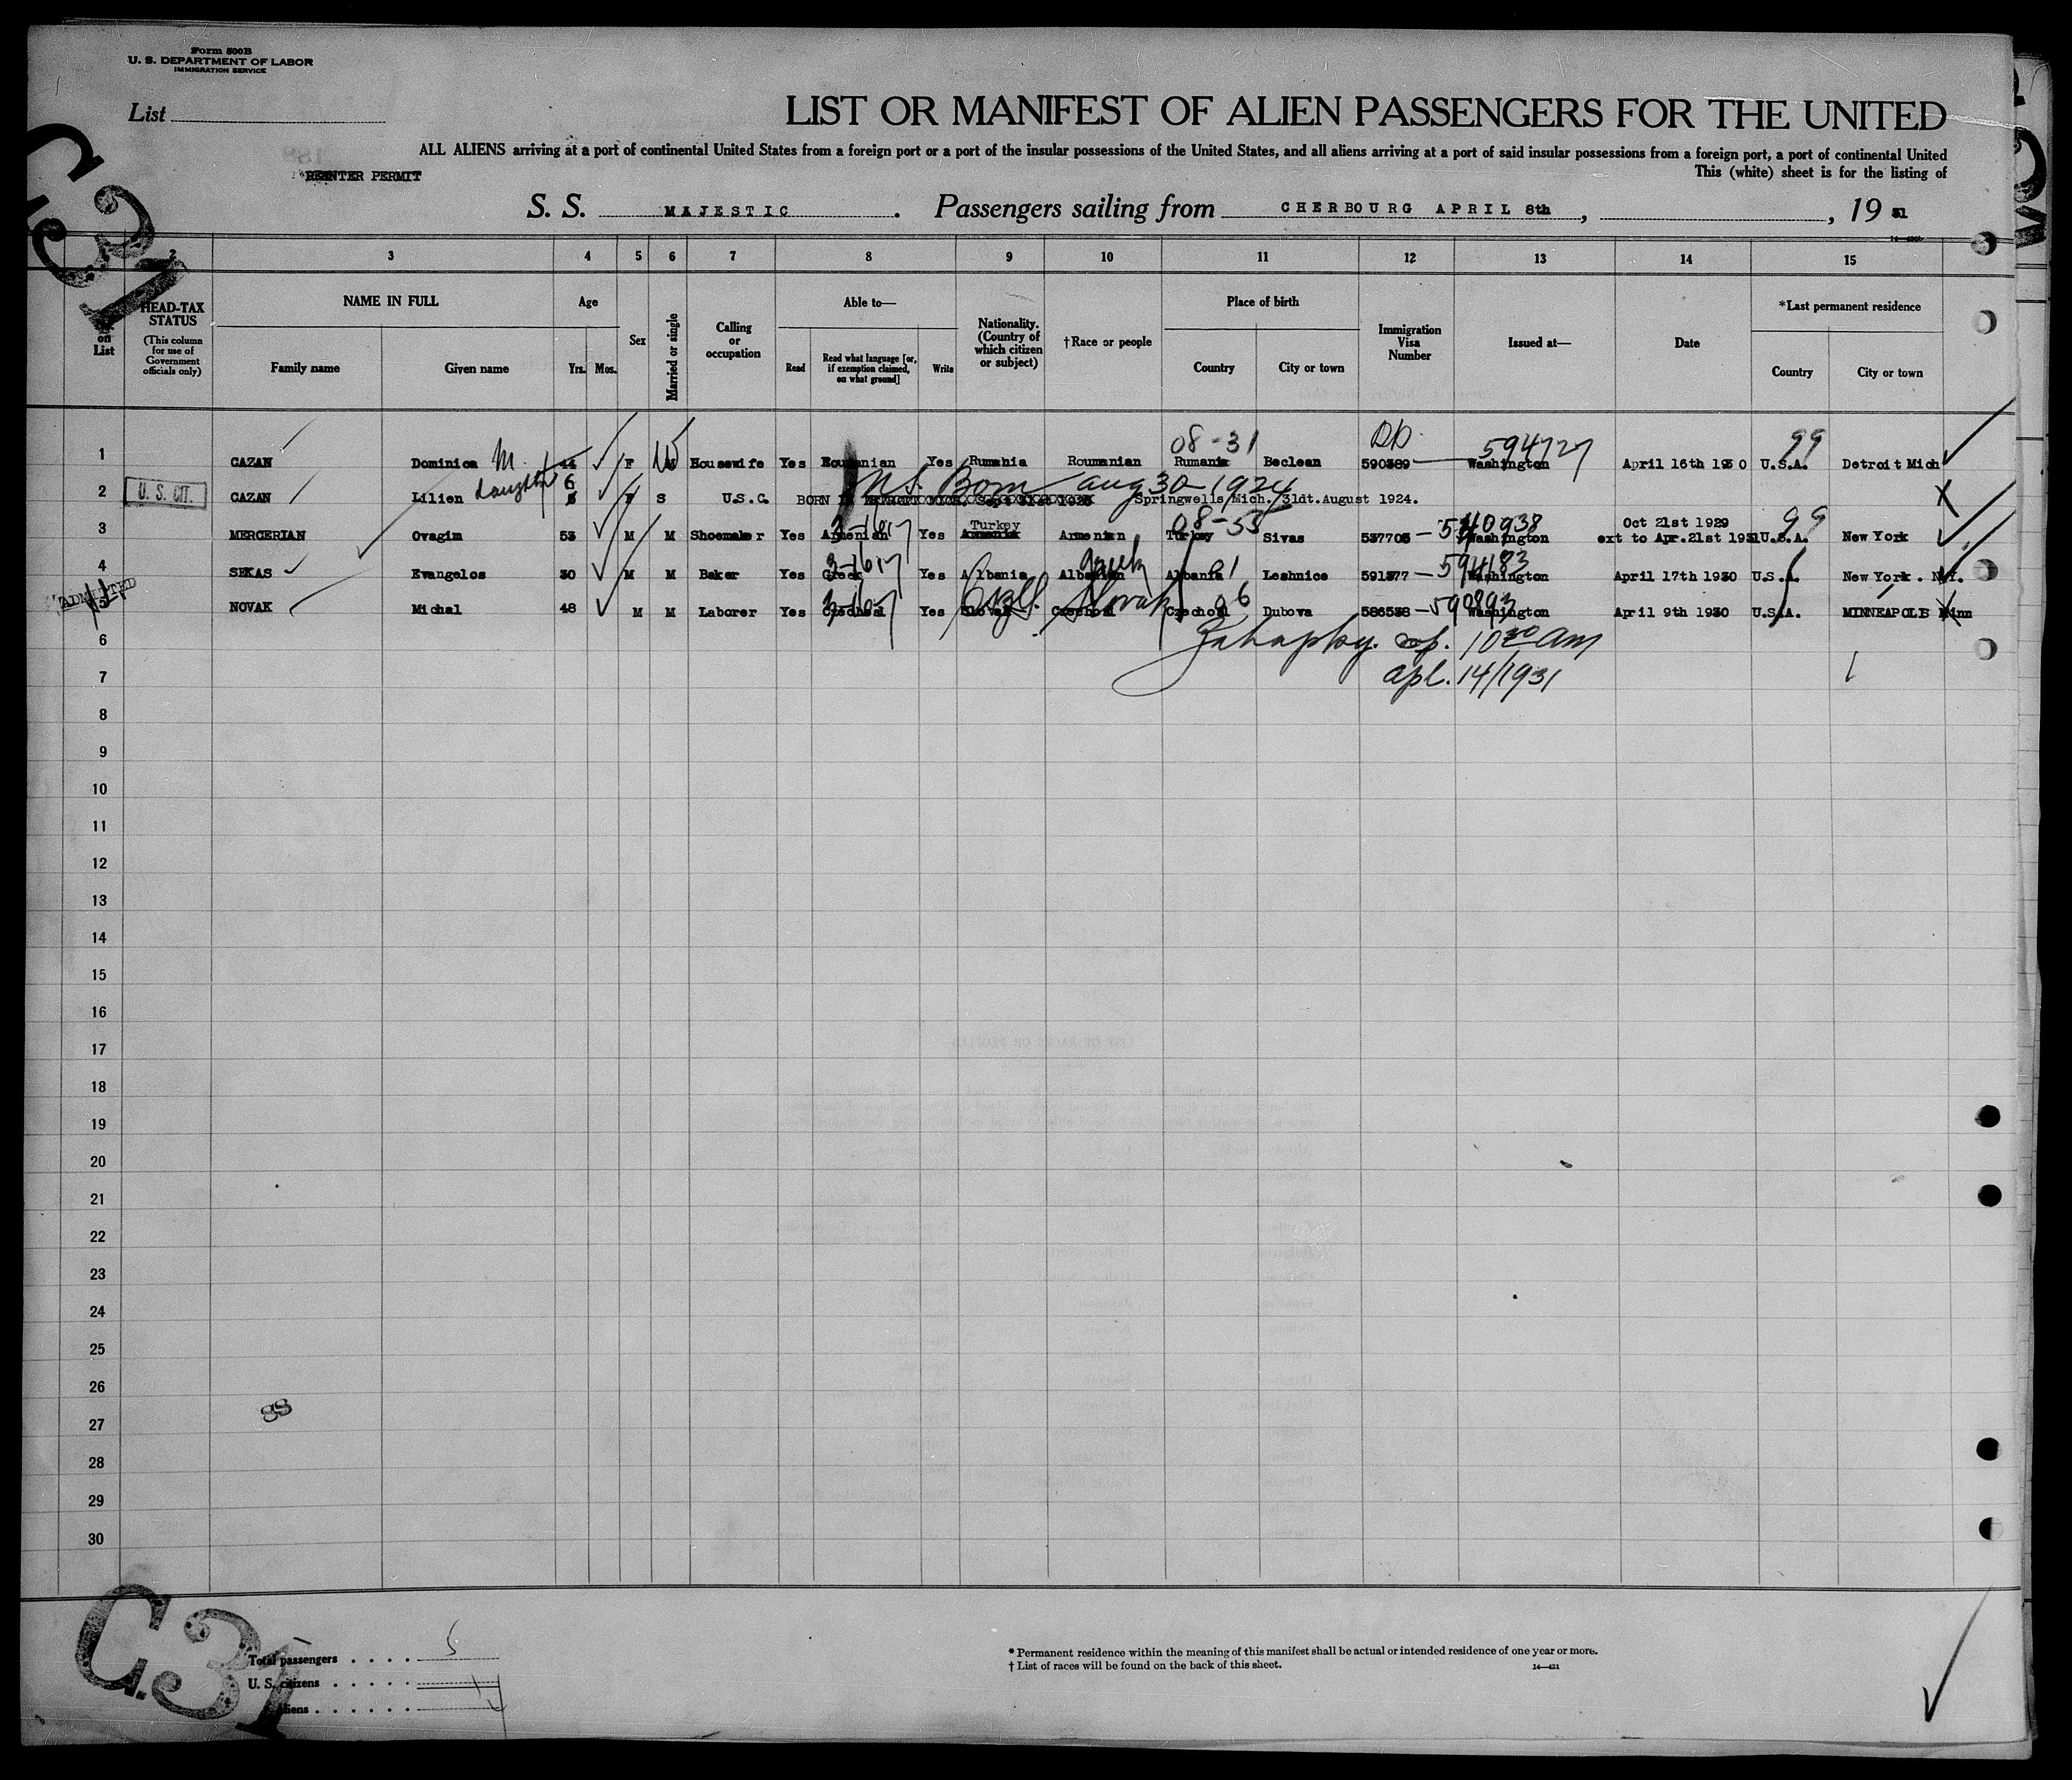 Form 500B
U. S. DEPARTMENT OF LABOR
IMMIGRATION SERVICE
List
LIST OR MANIFEST OF ALIEN PASSENGERS FOR THE UNITED
ALL ALIENS arriving at a port of continental United States from a foreign port or a port of the insular possessions of the United States, and all aliens arriving at a port of said insular possessions from a foreign port, a port of continental United
REENTER PERMIT
This (white) sheet is for the listing of
S. S. MAJESTIC. Passengers sailing from CHERBOURG APRIL 8th, , 19 31
C31
2 3 4 5 6 7 8 9 10 11 12 13 14 15
on List
HEAD-TAX STATUS (This column for use of Government officials only)
NAME IN FULL Family name Given name
Age Yrs. Mos.
Sex
Married or single
Calling or occupation
Able to— Read Read what language [or, if exemption claimed, on what ground] Write
Nationality. (Country of which citizen or subject)
†Race or people
Place of birth Country City or town
Immigration Visa Number
Issued at—
Date
*Last permanent residence Country City or town
1 CAZAN Dominica M. 44 F W Housewife Yes Roumanian Yes Rumania Roumanian 08-31 Rumania Beclean 590389 — 594727 Washington April 16th 1930 99 U.S.A. Detroit Mich
2 U. S. CIT. CAZAN Lilien daughter 6 F S U.S.C. BORN Born aug 30-1924 Springwells Mich. 31dt.August 1924. X
3 MERCERIAN Ovagim 53 M M Shoemaker Yes Armenian Yes Turkey Armenian 08-53 Turkey Sivas 537703 — 540938 Washington Oct 21st 1929 ext to Apr.21st 1931 99 U.S.A. New York
4 SEKAS Evangelos 30 M M Baker Yes Greek Yes Albania Albanian Greek Albania 01 Leshnice 591377 — 594183 Washington April 17th 1930 U.S.A. New York. N.Y.
ADMITTED
5 NOVAK Michal 48 M M Laborer Yes Czechosl Yes Slovak Czechosl Slovak Czechosl 06 Dubova 586538 — 590893 Washington April 9th 1930 U.S.A. MINNEAPOLIS Minn
6 10 30 am
7 apl. 14/1931
8
9
10
11
12
13
14
15
16
17
18
19
20
21
22
23
24
25
26
27
28
29
30
C31
Total passengers . . . . 5
U. S. citizens . . . . . 1
Aliens . . . . . .
* Permanent residence within the meaning of this manifest shall be actual or intended residence of one year or more.
† List of races will be found on the back of this sheet. 14—421